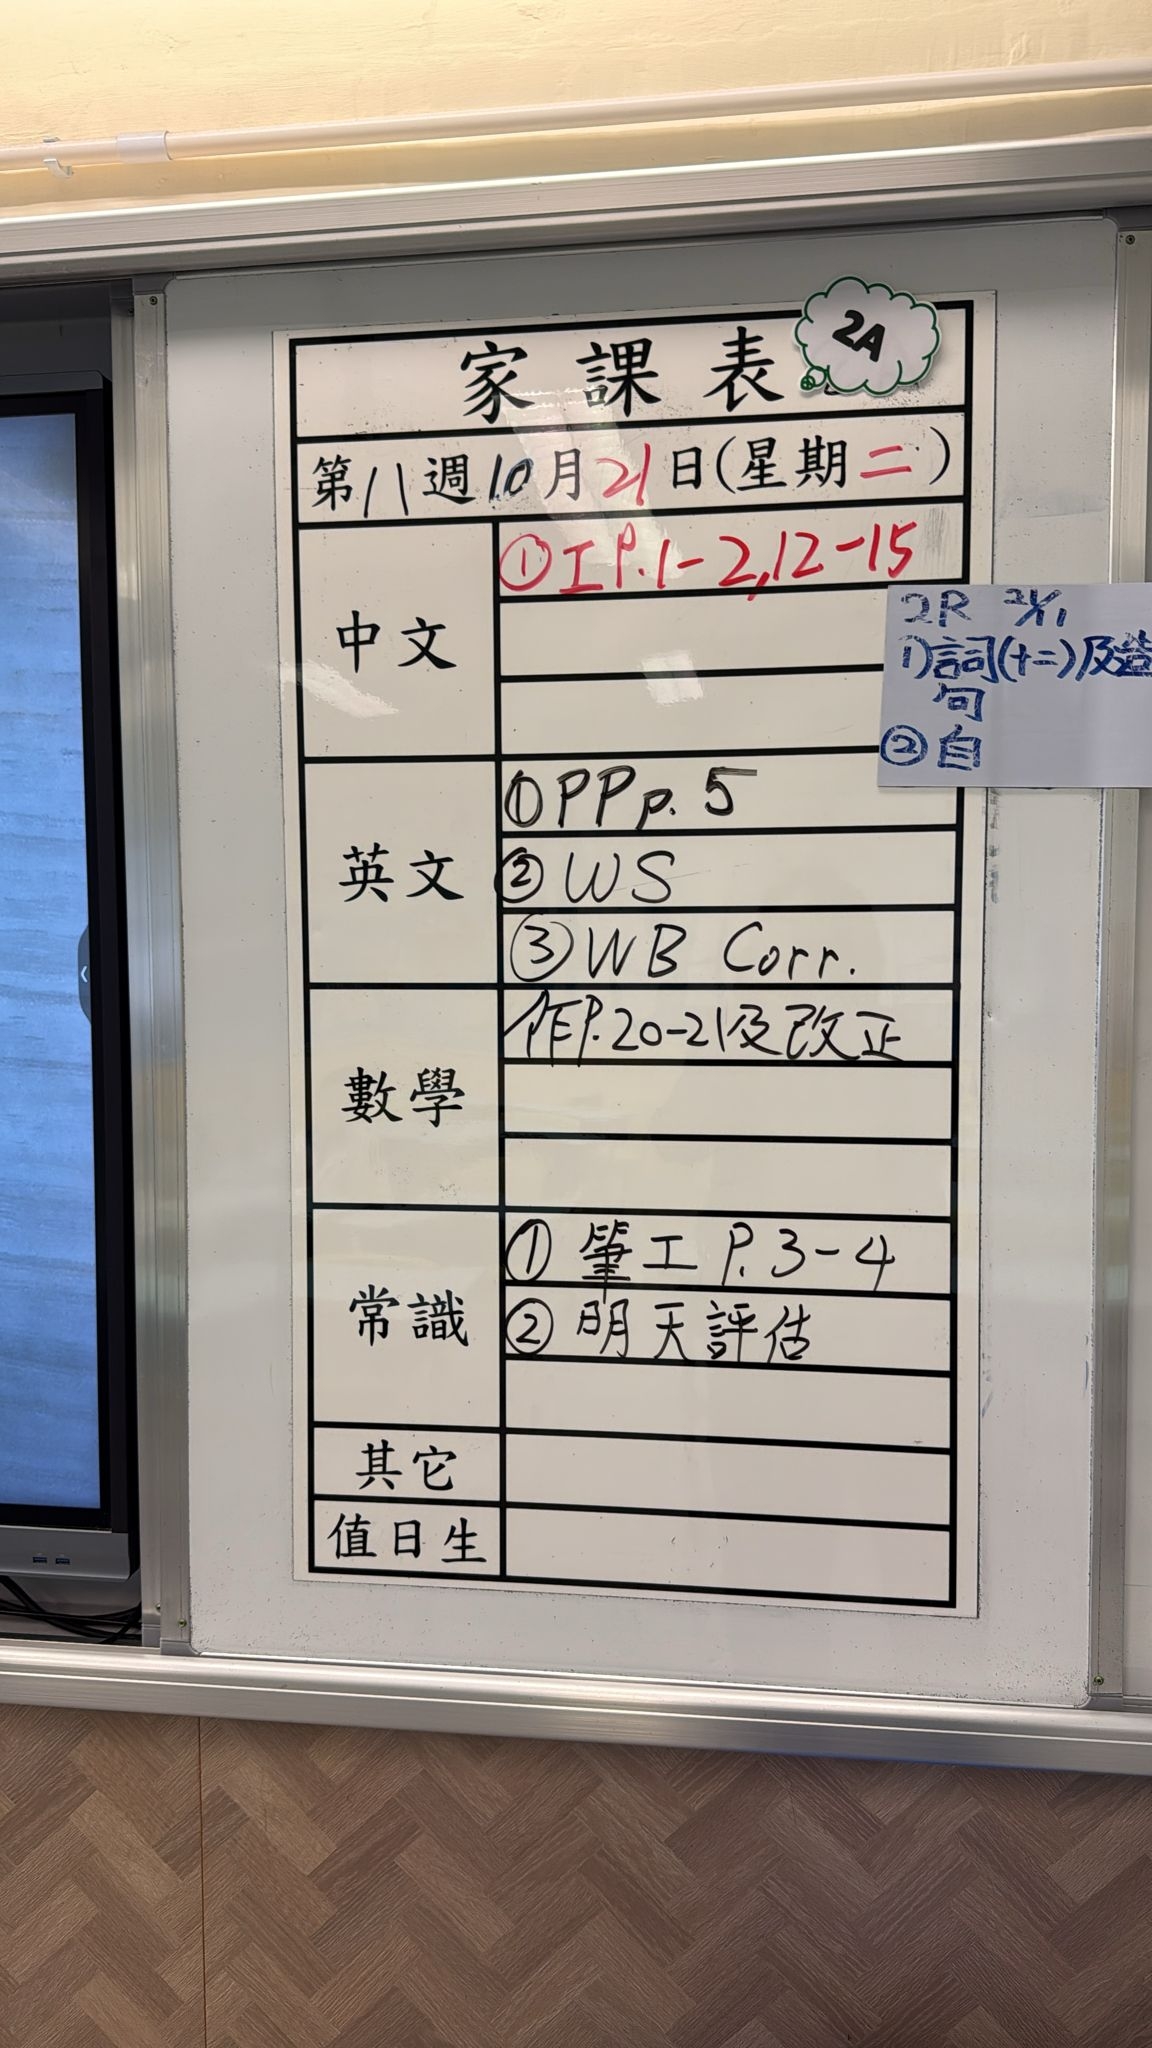 家課表
2A
第八週10月21日(星期二)
中文
①工P.1-2,12-15
2R
1)詞(十二)及造
句
②自
英文
①PP p.5
②WS
③WB Corr.
數學
作P.20-21及改正
常識
①筆工 P.3-4
②明天評估
其它
值日生